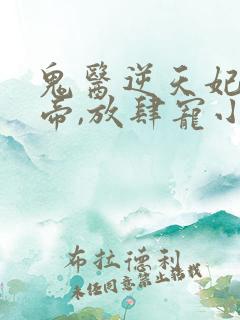 鬼醫逆天妃
帝,放肆寵小
布拉德利
未经同意禁止转载